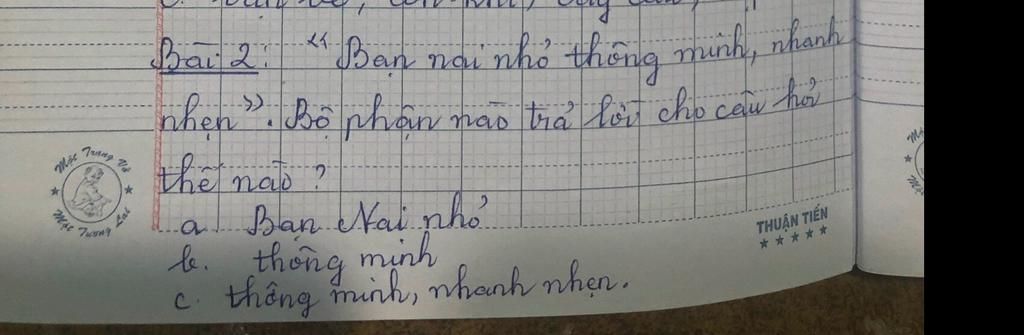 Bài 2: " Bạn nai nhỏ thông minh, nhanh
nhẹn ". Bộ phận nào trả lời cho câu hỏi
thế nào ?
a Bạn Nai nhỏ
b. thông minh
c. thông minh, nhanh nhẹn.
Một Trang Vở
Một Tương Lai
THUẬN TIẾN